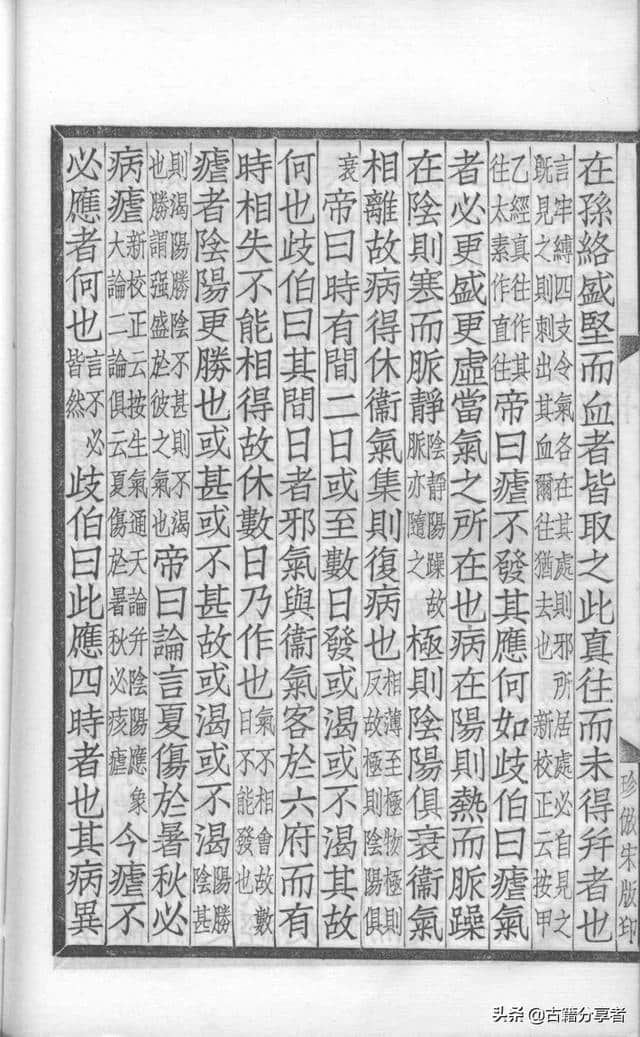 珍倣宋版印
在孫絡盛堅而血者皆取之此真往而未得幷者也
言牢縛四支令氣各在其處則邪所居處必自見之
旣見之則刺出其血爾往猶去也 新校正云按甲
乙經真往作其
往太素作直往
帝曰瘧不發其應何如歧伯曰瘧氣
者必更盛更虛當氣之所在也病在陽則熱而脈躁
在陰則寒而脈靜
陰靜陽躁故
脈亦隨之
極則陰陽俱衰衞氣
相離故病得休衞氣集則復病也
相薄至極物極則
反故極則陰陽俱
衰
帝曰時有間二日或至數日發或渴或不渴其故
何也歧伯曰其間日者邪氣與衞氣客於六府而有
時相失不能相得故休數日乃作也
氣不相會故數
日不能發也
瘧者陰陽更勝也或甚或不甚故或渴或不渴
陽勝
陰甚
則渴陽勝陰不甚則不渴
也勝謂强盛於彼之氣也
帝曰論言夏傷於暑秋必
病瘧
新校正云按生氣通天論幷陰陽應象
大論二論俱云夏傷於暑秋必痎瘧
今瘧不
必應者何也
言不必
皆然
歧伯曰此應四時者也其病異
头条 @古籍分享者